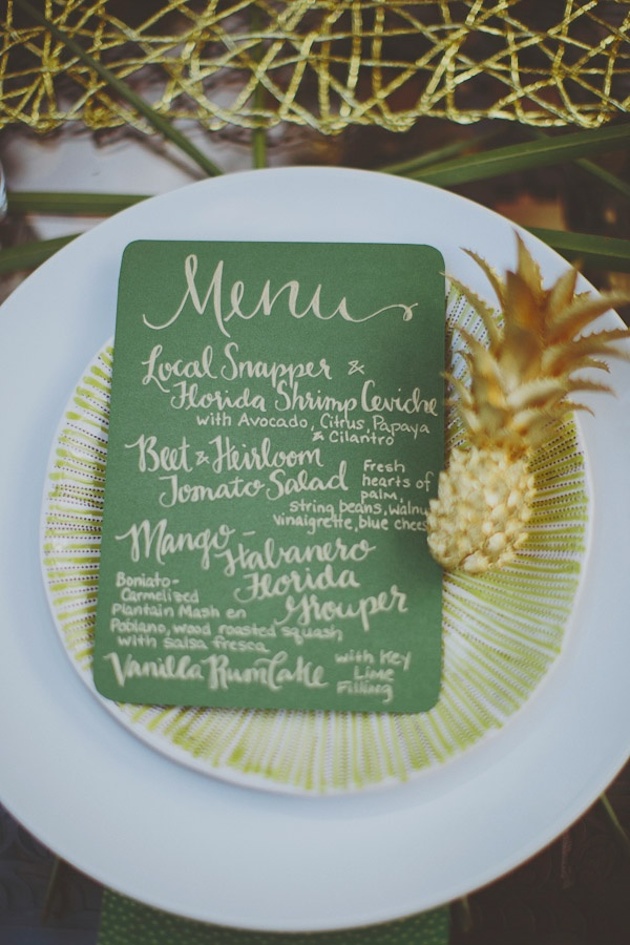 Menu
Local Snapper &
Florida Shrimp Ceviche
with Avocado, Citrus, Papaya
& Cilantro
Beet & Heirloom
Tomato Salad
Fresh
hearts of
palm,
string beans, walnut
vinaigrette, blue chees
Mango-
Habanero
Florida
Grouper
Boniato-
Carmelized
Plantain Mash en
Poblano, wood roasted squash
with salsa fresca
Vanilla Rum Cake
with Key
Lime
Filling